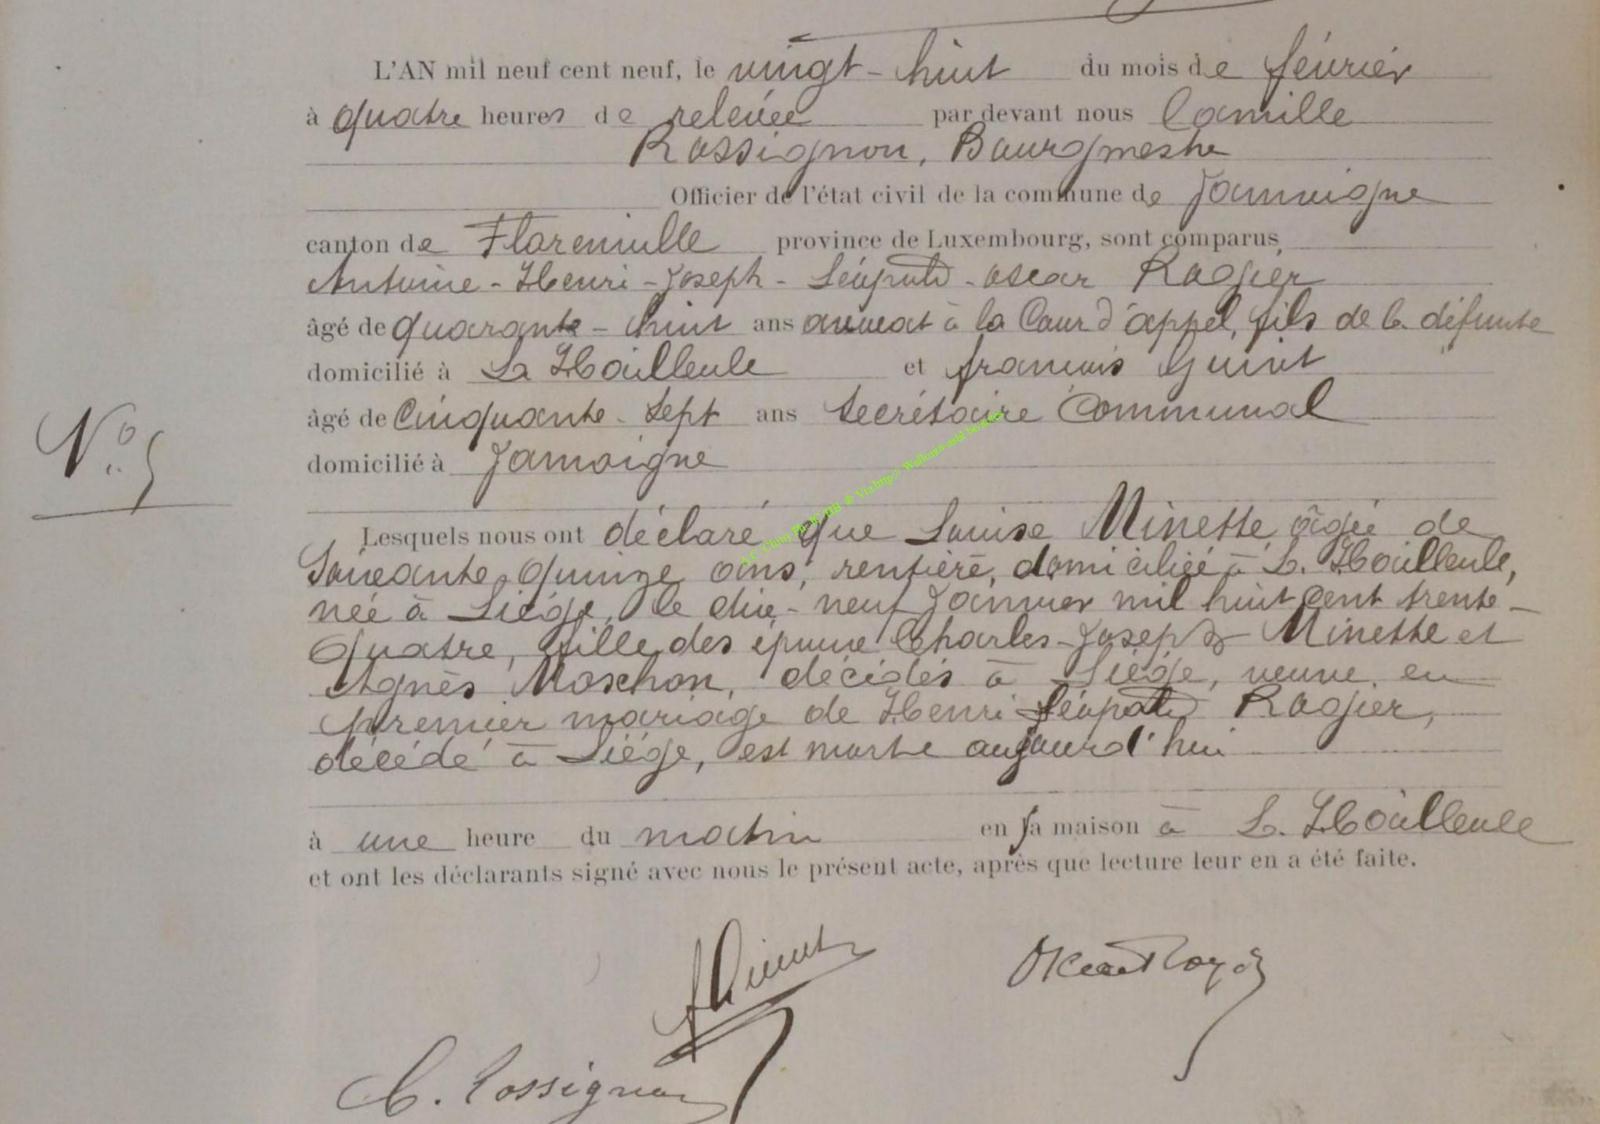 L'AN mil neuf cent neuf, le vingt-huit du mois de février
à quatre heures de relevée par devant nous Camille
Rossignon, Bourgmestre
Officier de l'état civil de la commune de Jamoigne
canton de Florenville province de Luxembourg, sont comparus
Antoine-Henri-Joseph-Léopold-Oscar Rogier
âgé de quarante-huit ans avocat à la Cour d'appel, fils de la défunte
domicilié à La Hailleule et François Guiot
âgé de Cinquante-sept ans Secrétaire Communal
N° 5
domicilié à Jamoigne
Lesquels nous ont déclaré que Louise Minette âgée de
Soixante quinze ans, rentière, domiciliée à La Hailleule,
née à Liège, le dix-neuf Janvier mil huit cent trente-
quatre, fille des époux Charles-Joseph Minette et
Agnès Moxhon, décédés à Liège, veuve en
premier mariage de Henri Léopold Rogier,
décédé à Liège, est morte aujourd'hui
à une heure du matin en sa maison à La Hailleule
et ont les déclarants signé avec nous le présent acte, après que lecture leur en a été faite.
C. Rossignon